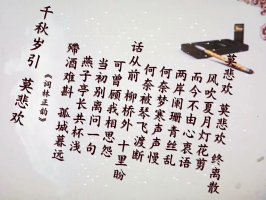 千秋岁引 莫悲欢
《词林正韵》
莫悲欢 莫悲欢 终离散
风吹夏月灯花剪
而今不由心衷语
两岸阑珊青丝乱
何奈梦寒声声慢
何奈被琴飞渡断
话从前 柳桥外 十里盼
可曾顾我相思怨
当初别离问一句
燕子亭长共杯浅
殢酒难斟 孤城暮远